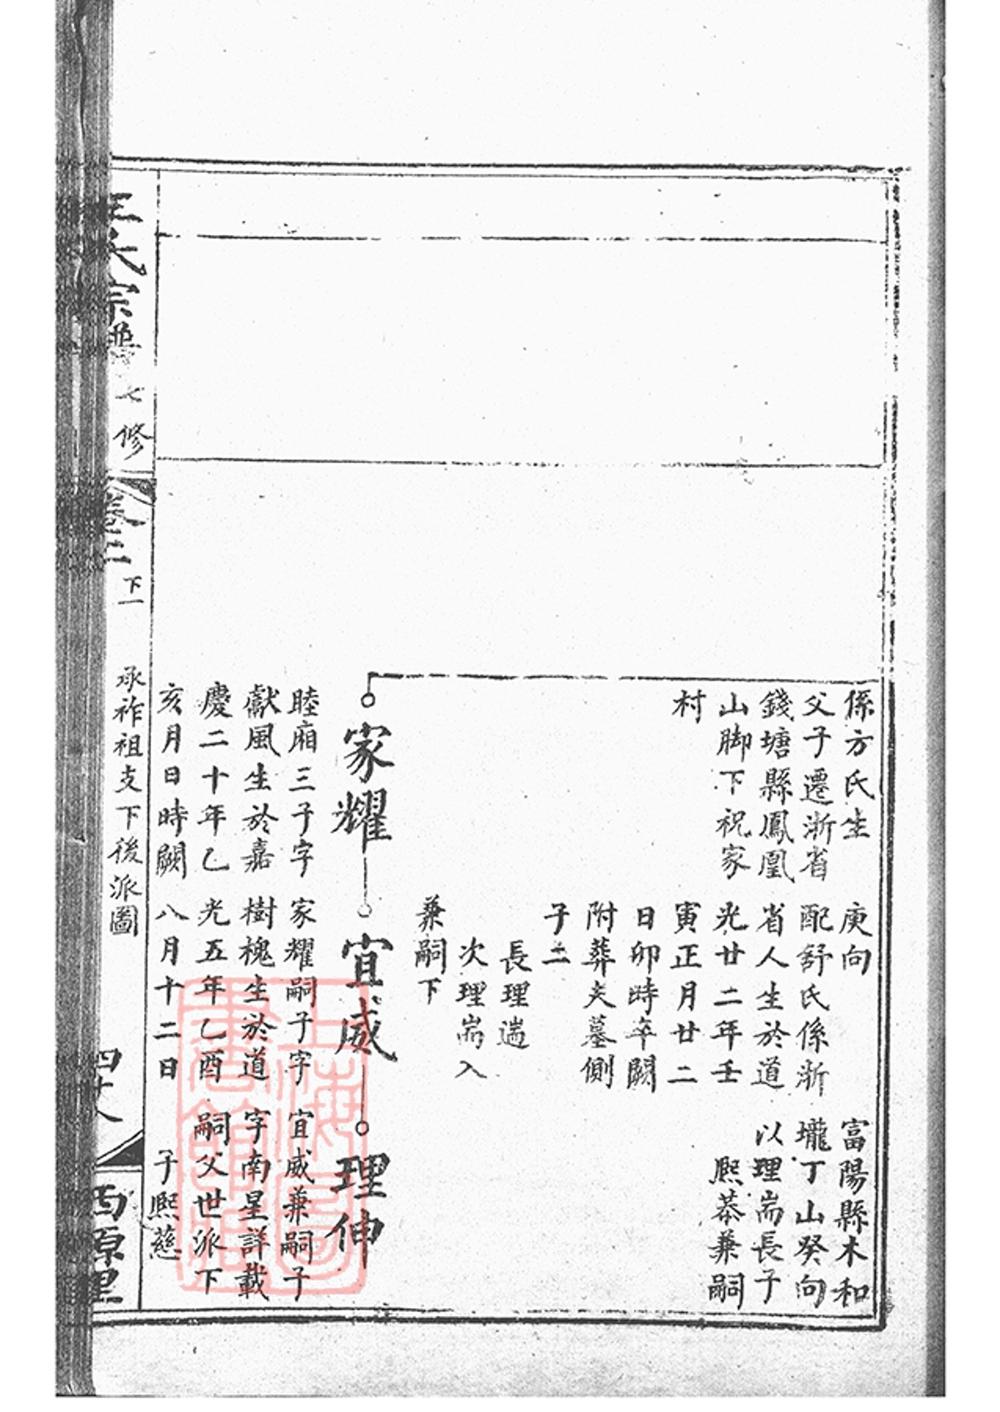 係方氏生
父子遷浙省
錢塘縣鳳凰
山脚下祝家
村
庚向
配舒氏係浙
省人生於道
光廿二年壬
寅正月廿二
日卯時卒闕
附葬夫墓側
子二
長理湍
次理耑入
兼嗣下
富陽縣木和
壠丁山癸向
以理耑長子
熙恭兼嗣
家耀
宜威
理伸
睦廂三子字
獻風生於嘉
慶二十年乙
亥月日時闕
家耀嗣子字
樹槐生於道
光五年乙酉
八月十二日
宜威兼嗣子
字南星詳載
嗣父世派下
子熙慈
王氏宗譜
七修
卷二
下一
承祚祖支下後派圖
四十八
西原里
上海圖書館藏